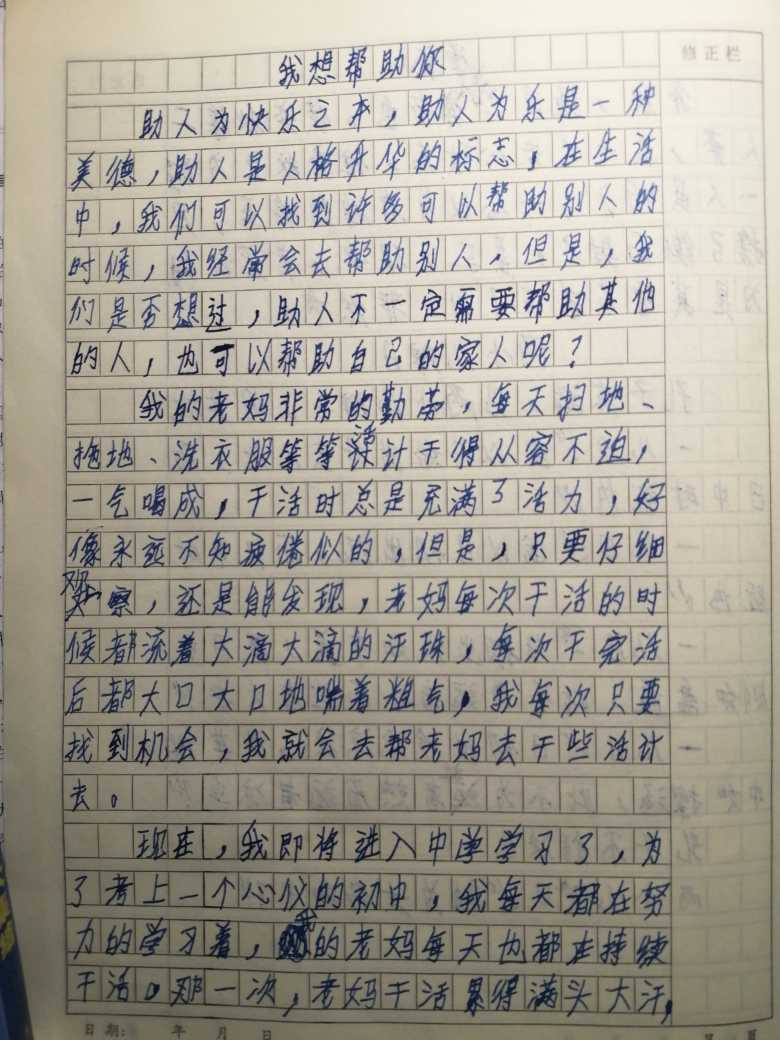 修正栏
我想帮助你
助人为快乐之本，助人为乐是一种
美德，助人是人格升华的标志，在生活
中，我们可以找到许多可以帮助别人的
时候，我经常会去帮助别人，但是，我
们是否想过，助人不一定需要帮助其他
的人，也可以帮助自己的家人呢？
我的老妈非常的勤劳，每天扫地、
拖地、洗衣服等等活计干得从容不迫，
一气喝成，干活时总是充满了活力，好
像永远不知疲倦似的，但是，只要仔细
观察，还是能发现，老妈每次干活的时
候都流着大滴大滴的汗珠，每次干完活
后都大口大口地喘着粗气，我每次只要
找到机会，我就会去帮老妈去干些活计
去。
现在，我即将进入中学学习了，为
了考上一个心仪的初中，我每天都在努
力的学习着，我的老妈每天也都在持续
干活。那一次，老妈干活累得满头大汗，
日期： 年 月 日 第 页